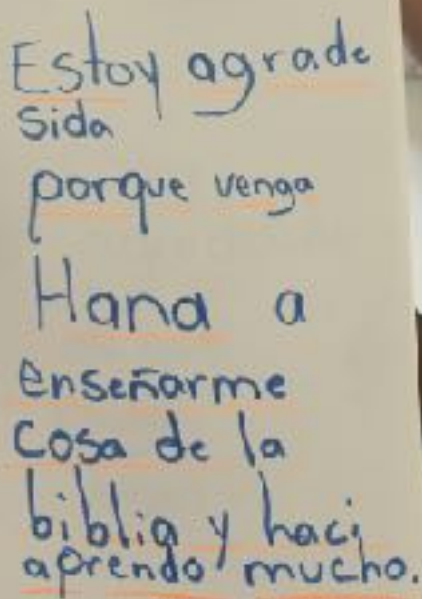 Estoy agrade
sida
porque venga
Hana a
enseñarme
cosa de la
biblia y haci
aprendo mucho.